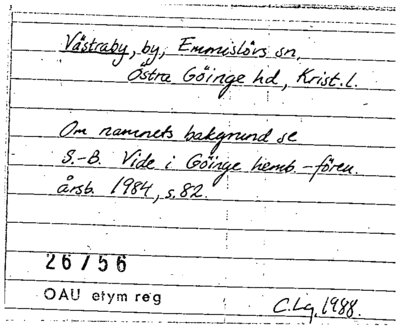 Västraby, by, Emmislövs sn,
Östra Göinge hd, Krist. l.
Om namnets bakgrund se
S.-B. Vide i Göinge hemb.-fören.
årsb. 1984, s. 82.
26756
OAU etym reg
C.Lg. 1988.